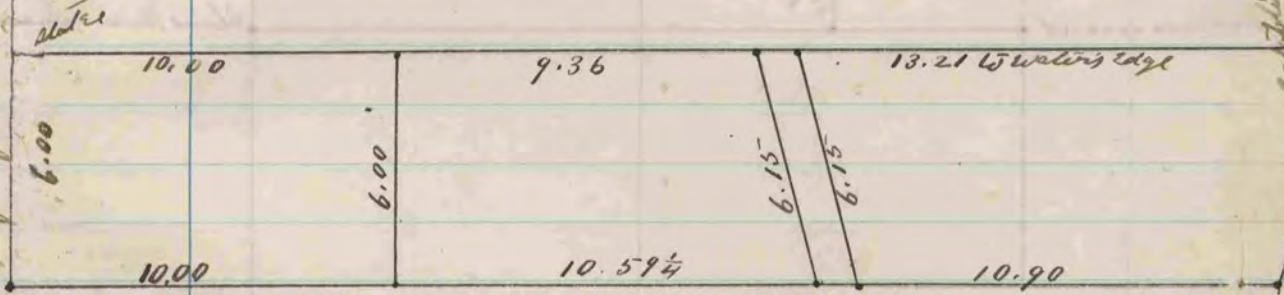 10.00 9.36 13.21 to water's edge
6.00 6.00 6.15 6.15
10.00 10.59¼ 10.90